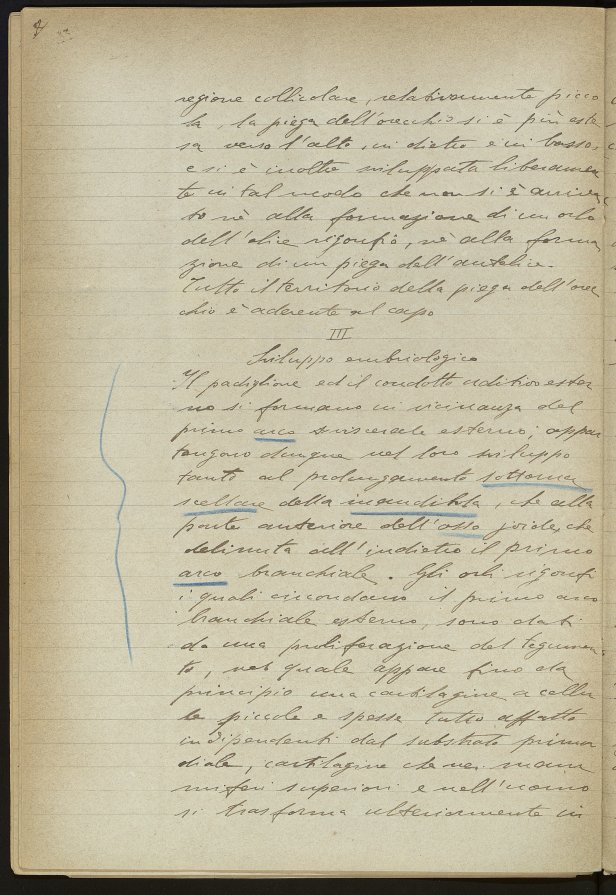 regione collicolare, relativamente picco
la, la piega dell'orecchio si è più este
sa verso l'alto, in dietro e in basso,
e si è inoltre sviluppata liberamen
te in tal modo che non si è arriva
to nè alla formazione di un orlo
dell'elice rigonfio, nè alla forma
zione di un piega dell'antelice.
Tutto il territorio della piega dell'orec
chio è aderente al capo
III
Sviluppo embriologico
Il padiglione ed il condotto uditivo ester
no si formano in vicinanza del
primo arco viscerale esterno; appar
tengono dunque nel loro sviluppo
tanto al prolungamento sottoma
scellare della mandibola, che alla
parte anteriore dell'osso joide, che
delimita all'indietro il primo
arco branchiale. Gli orli rigonfi
i quali circondano il primo arco
branchiale esterno, sono dati
da una proliferazione del tegumen
to, nel quale appare fino da
principio una cartilagine a cellu
le piccole e spesse tutto affatto
indipendenti dal substrato primor
diale, cartilagine che nei mam
miferi superiori e nell'uomo
si trasforma ulteriormente in